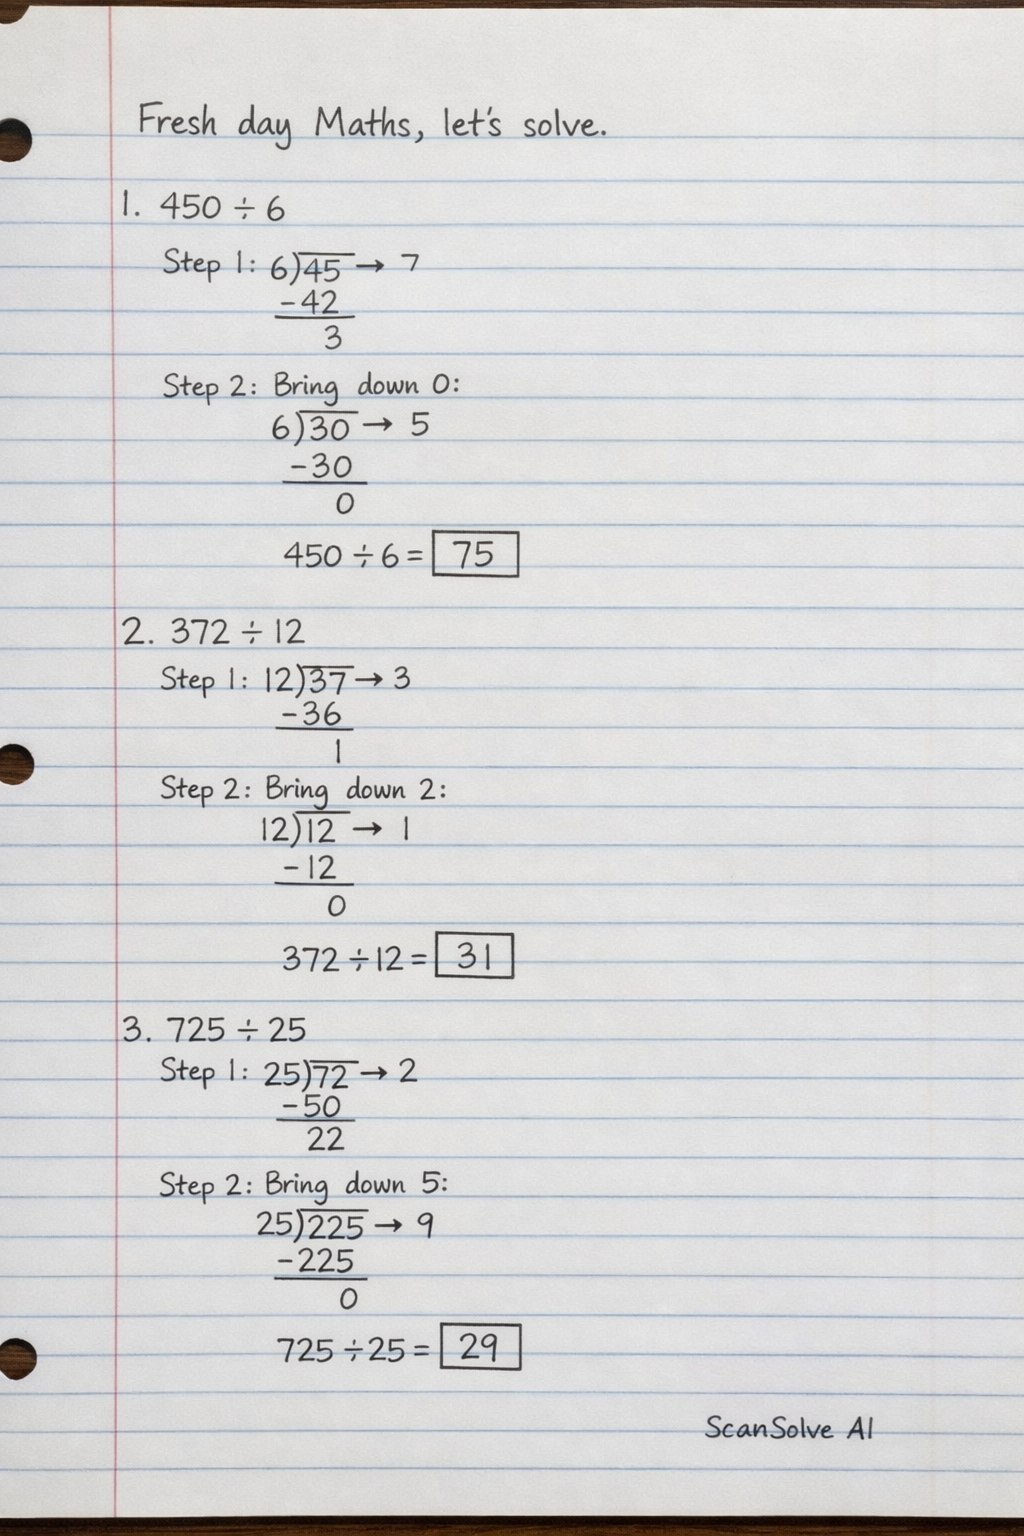 Fresh day Maths, let's solve.
1. 450 ÷ 6
Step 1: 6)45 → 7
-42
3
Step 2: Bring down 0:
6)30 → 5
-30
0
450 ÷ 6 = 75
2. 372 ÷ 12
Step 1: 12)37 → 3
-36
1
Step 2: Bring down 2:
12)12 → 1
-12
0
372 ÷ 12 = 31
3. 725 ÷ 25
Step 1: 25)72 → 2
-50
22
Step 2: Bring down 5:
25)225 → 9
-225
0
725 ÷ 25 = 29
ScanSolve AI